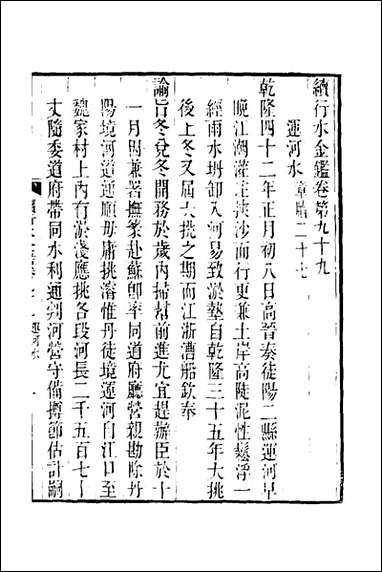 續行水金鑑卷第九十九
運河水章牘二十七
乾隆四十二年正月初八日高晉奏徒陽二縣運河早
晚江潮灌注挾沙而行更兼土岸高陡泥性鬆浮一
經雨水坍卸入河易致淤墊自乾隆三十五年大挑
後上冬又屆大挑之期而江浙漕船欽奉
諭旨冬兌冬開務於歲內掃幫前進尤宜趕辦臣於十
一月間兼署撫篆赴蘇卽率同道府廳營親勘除丹
陽境河道通順毋庸挑濬惟丹徒境運河自江口至
魏家村上內有淤淺應挑各段河長二千五百七十
丈隨委道府帶同水利通判河營守備撙節估計嗣